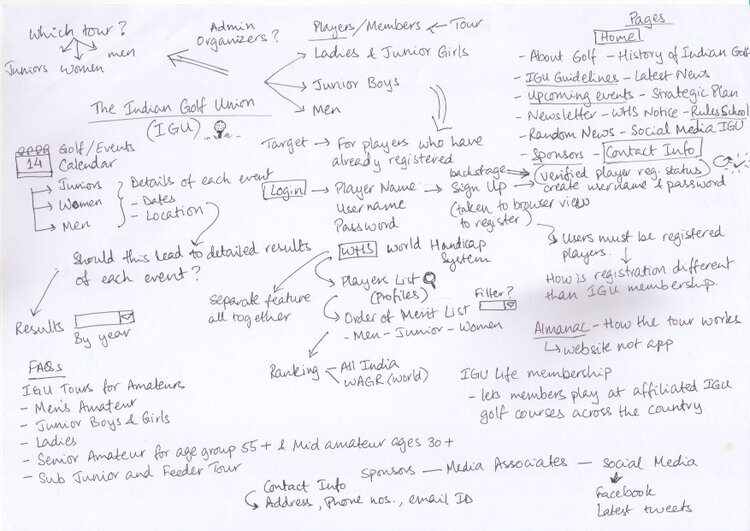 Which tour?
Juniors Women men
Admin
Organizers?
Players/Members ← Tour
Ladies & Junior Girls
Junior Boys
Men
The Indian Golf Union
(IGU)
Pages
Home
- About Golf - History of Indian Golf
- IGU Guidelines - Latest News
- Upcoming events - Strategic Plan
- Newsletter - WHS Notice - Rules School
- Random News - Social Media IGU
- Sponsors - Contact Info
14
Golf/Events
Calendar
→ Juniors
→ Women
→ Men
Details of each event
- Dates
- Location
Should this lead to detailed results
of each event?
Results
By year
Target → For players who have
already registered
Login → Player Name
Username
Password
backstage
→ Sign Up
(taken to browser view
to register)
(verified player reg. status)
create username & password
Users must be registered
players.
How is registration different
than IGU membership
WHS World Handicap
System
separate feature
all together
Players List
(Profiles)
Order of Merit List
- Men - Junior - Women
Filter?
Ranking - All India
WAGR (World)
Almanac - How the tour works
↳ website not app
IGU Life membership
- lets members play at affiliated IGU
golf courses across the country
FAQs
IGU Tours for Amateurs
- Men's Amateur
- Junior Boys & Girls
- Ladies
- Senior Amateur for age group 55+ & Mid amateur ages 30+
- Sub Junior and Feeder Tour
Sponsors — Media Associates — Social Media
Contact Info
Address, Phone nos., email ID
Facebook
Latest tweets